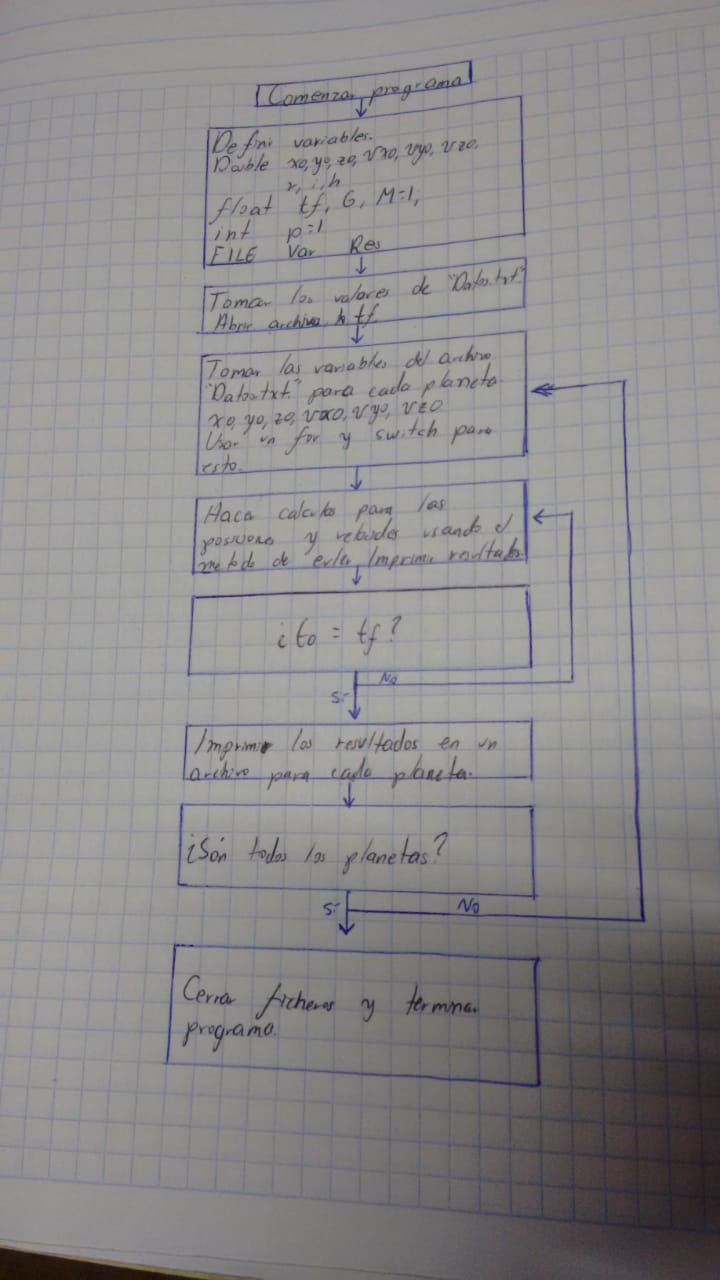 Comenzar programa
Definir variables.
Double x0, y0, z0, vx0, vy0, vz0,
r, i, h
float tf, G, M=1,
int p=1
FILE Var Res
Tomar los valores de "Datos.txt"
Abrir archivo h tf
Tomar las variables del archivo
"Datos.txt" para cada planeta
x0, y0, z0, vx0, vy0, vz0
Usar un for y switch para
esto.
Hacer calculos para las
posiciones y usando el
metodo de euler. Imprimir resultados.
¿t0 = tf?
No
Si
Imprimir los resultados en un
archivo para cada planeta.
¿Són todos los planetas?
Si
No
Cerrar ficheros y terminar
programa.